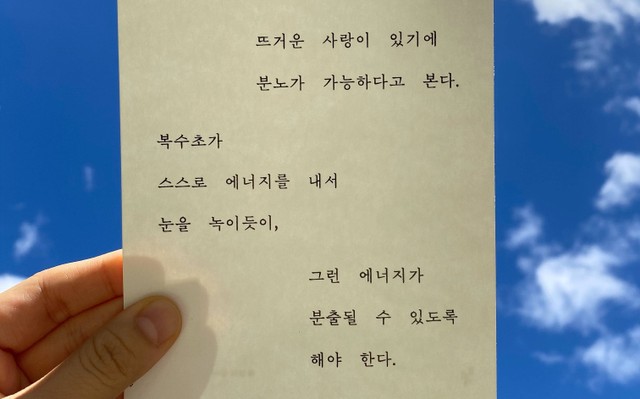 뜨거운 사랑이 있기에
분노가 가능하다고 본다.
복수초가
스스로 에너지를 내서
눈을 녹이듯이,
그런 에너지가
분출될 수 있도록
해야 한다.